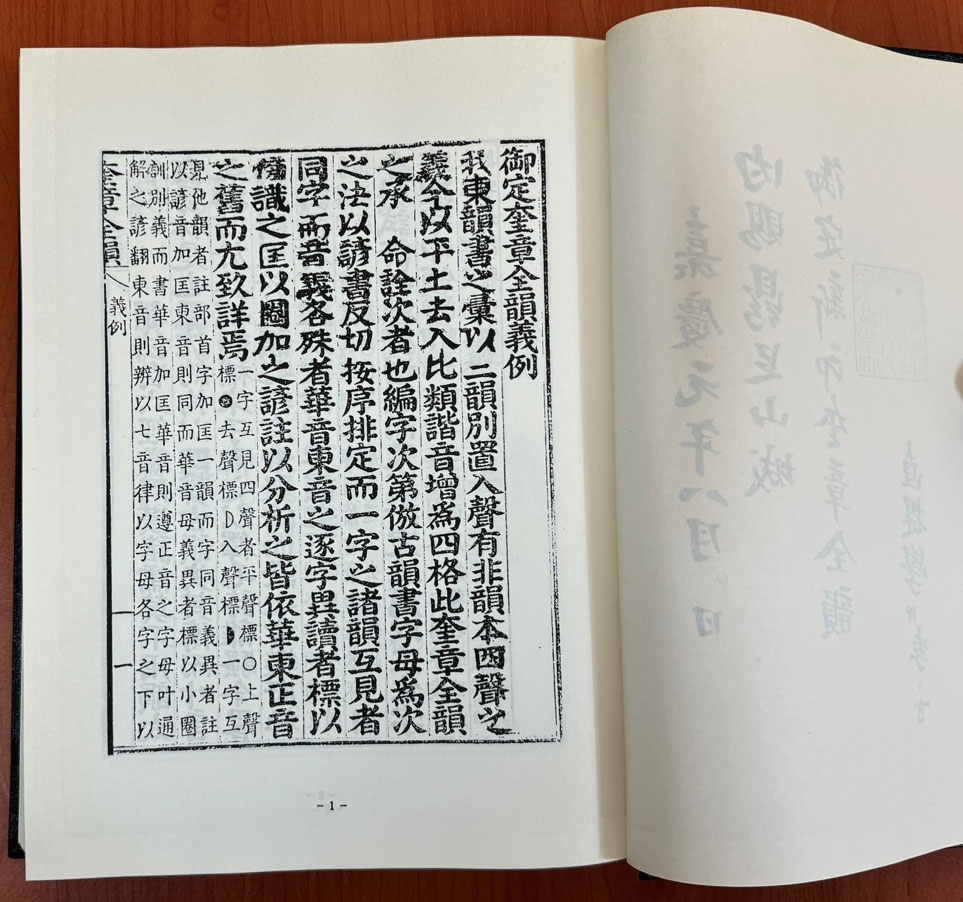 御定奎章全韻義例
我東韻書之彙以二韻別置入聲有非韻本四聲之
義今以平上去入比類諧音增爲四格此奎章全韻
之承 命詮次者也編字次第倣古韻書字母爲次
之法以諺書反切按序排定而一字之諸韻互見者
同字而音義各殊者華音東音之逐字異讀者標以
識之匡以圈加之諺註以分析之皆依華東正音
之舊而尤致詳焉
一字互見四聲者平聲標○上聲
標去聲標入聲標一字互
見他韻者註部首字加匡一韻而字同音義異者註
以諺音加匡東音則同而華音母義異者標以小圈
訓別義而書華音加匡華音則遵正音之字母叶通
解之諺翻東音則辨以七音律以字母各字之下以
奎章全韻 義例 一
- 1 -
嘉慶元年八月 日